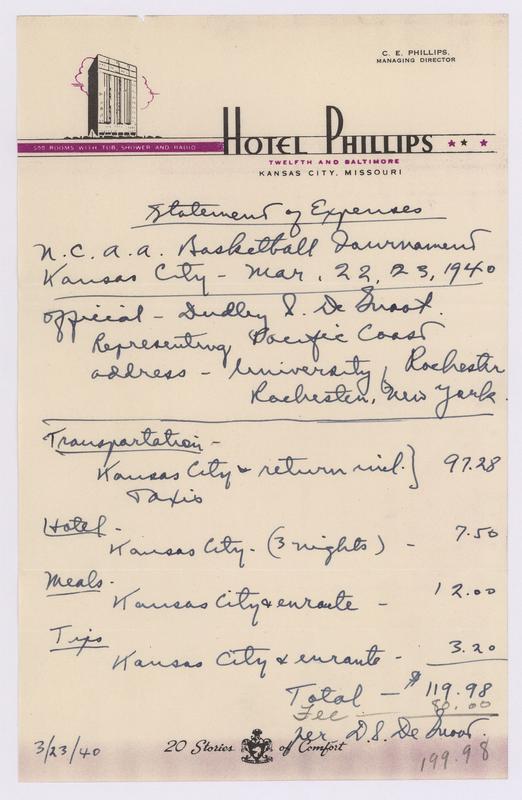 C. E. PHILLIPS,
MANAGING DIRECTOR
500 ROOMS WITH TUB, SHOWER AND RADIO
HOTEL PHILLIPS
TWELFTH AND BALTIMORE
KANSAS CITY, MISSOURI
Statement of Expenses
N.C.A.A. Basketball Tournament
Kansas City - Mar. 22, 23, 1940
Official - Dudley S. De Groot.
Representing Pacific Coast
address - University of Rochester
Rochester, New York.
Transportation -
Kansas City & return incl. ] 97.28
Taxis
Hotel -
Kansas City - (3 nights) - 7.50
Meals -
Kansas City & enroute - 12.00
Tips
Kansas City & enroute - 3.20
Total - $119.98
Fee 80.00
per D.S. De Groot.
199.98
3/23/40
20 Stories of Comfort